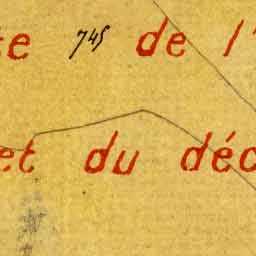 745 de l'
et du